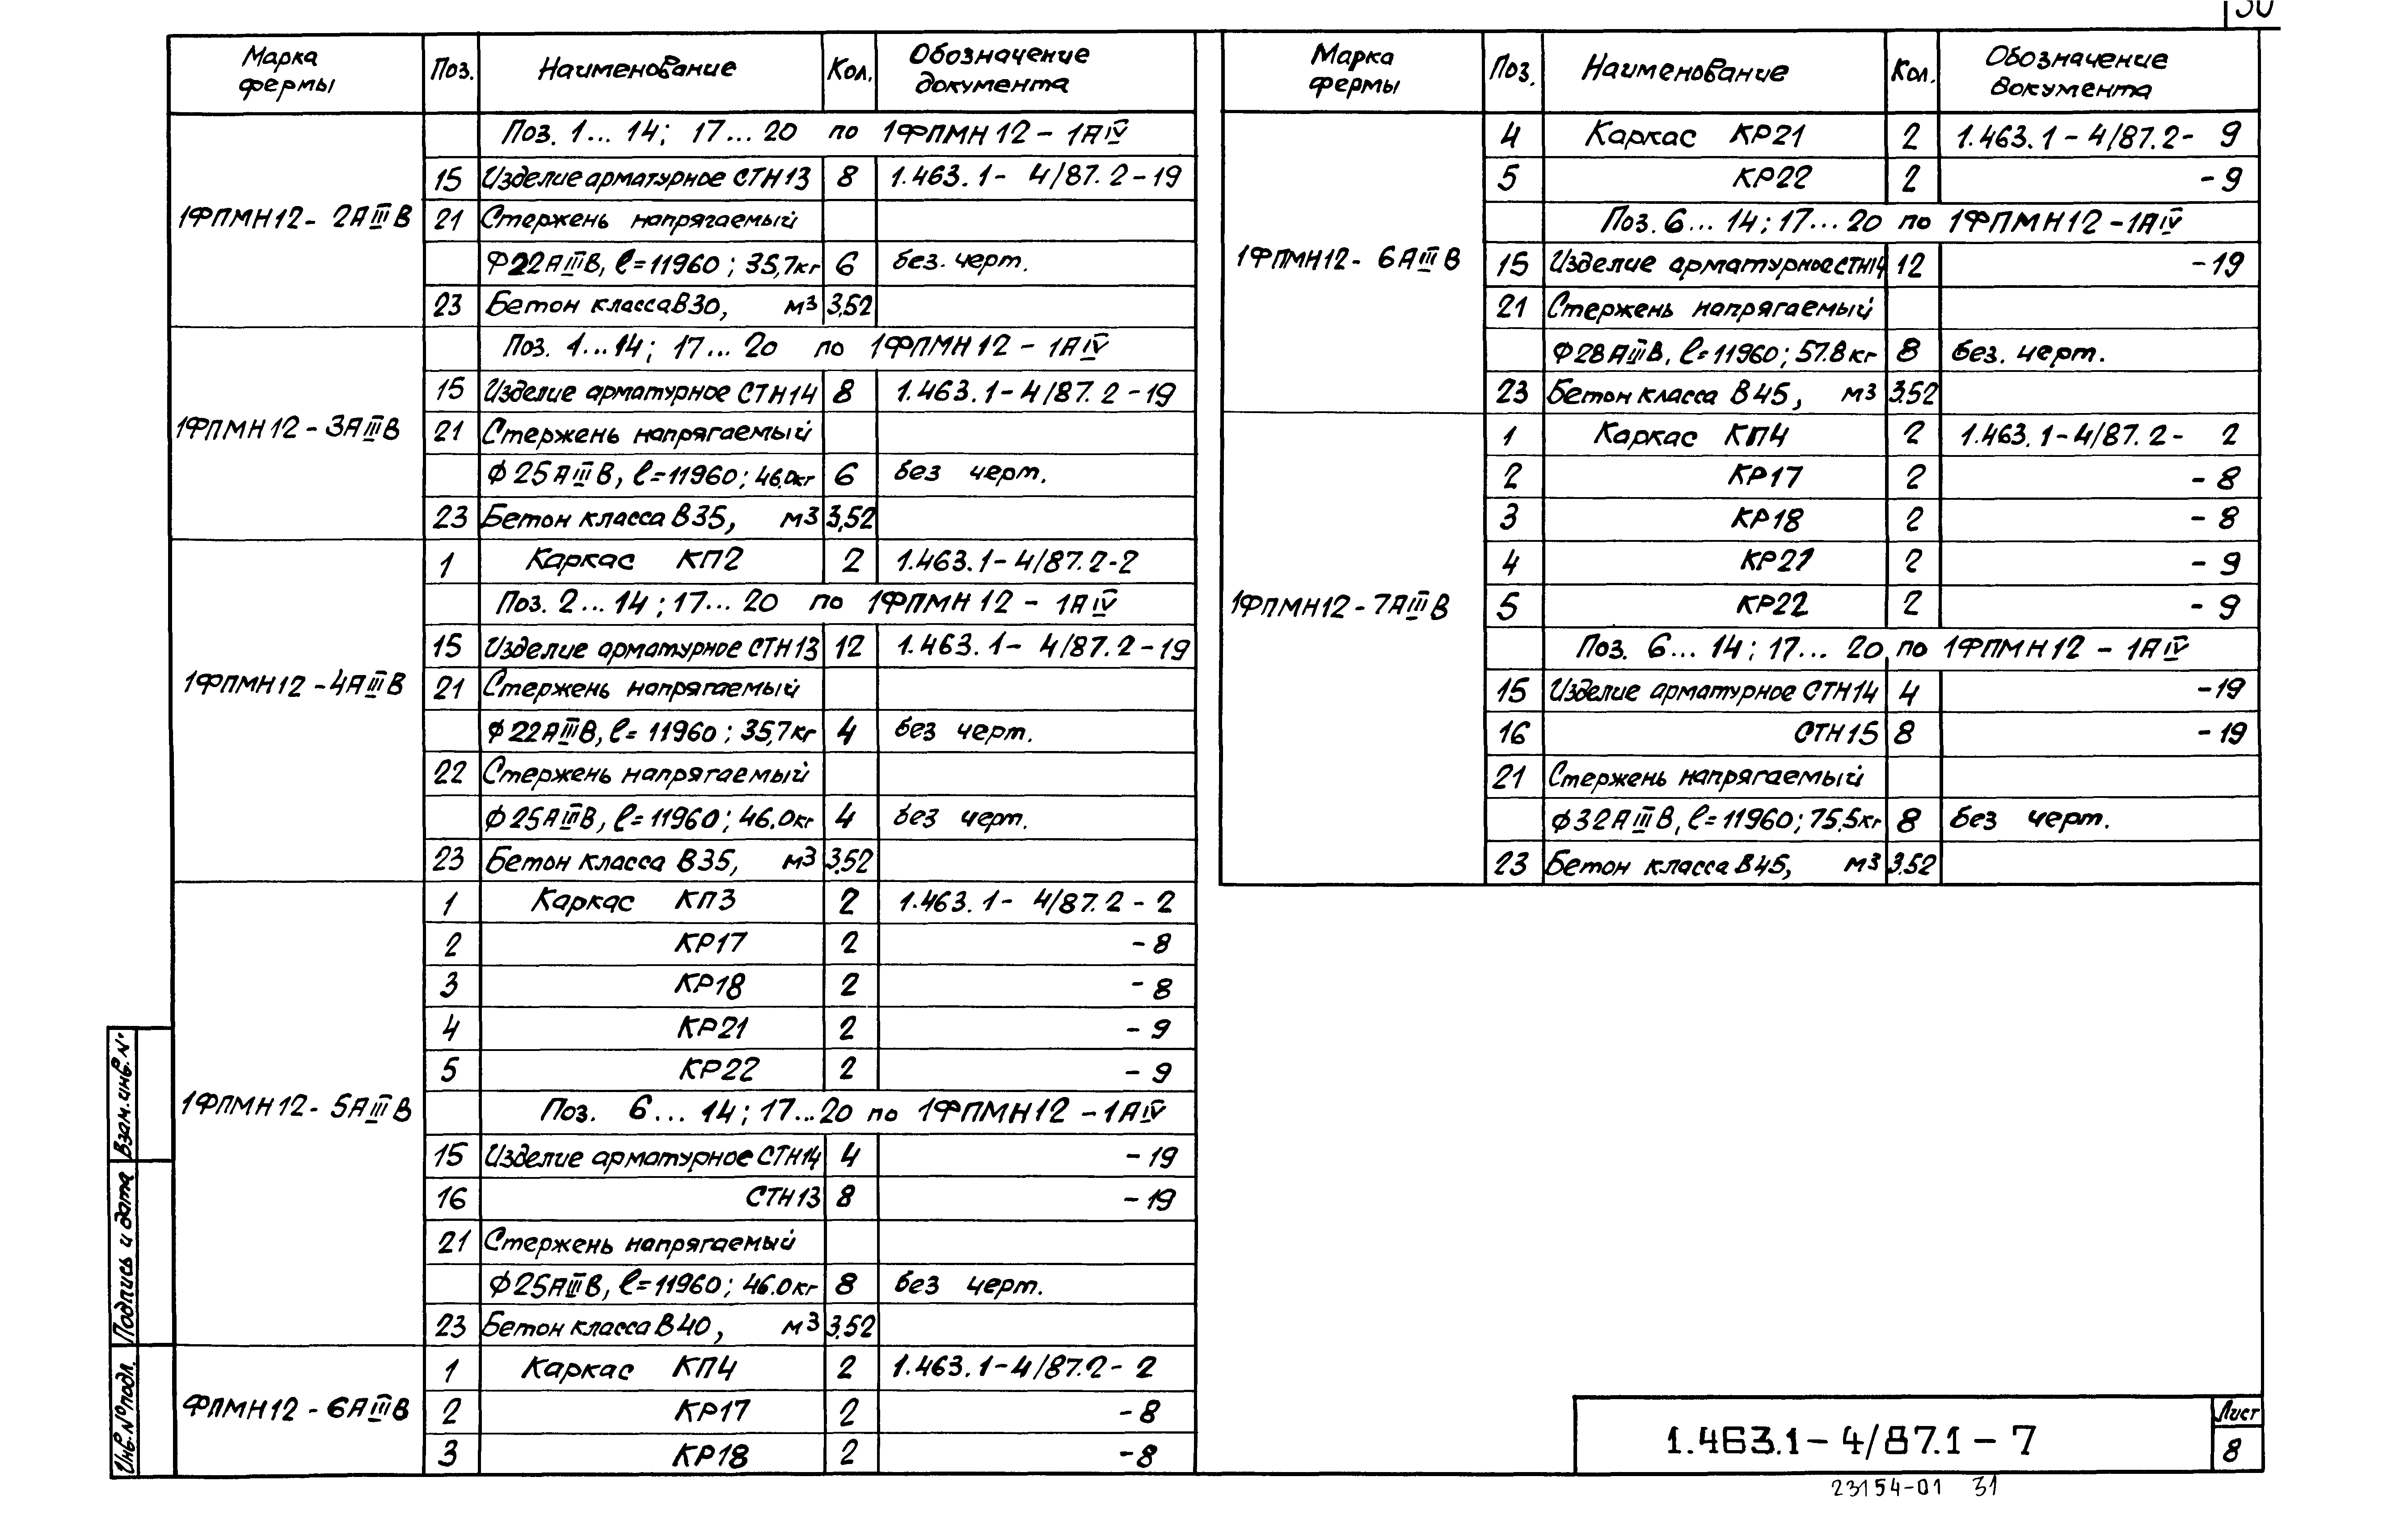 30
Марка фермы Поз. Наименование Кол. Обозначение документа
Поз. 1... 14; 17... 20 по 1ФПМН12-1АIV
1ФПМН12-2АIIIВ
15 Изделие арматурное СТН13 8 1.463.1-4/87.2-19
21 Стержень напрягаемый
Ф22АIIIВ, ℓ=11960; 35,7кг 6 без. черт.
23 Бетон класса В30, м3 3,52
Поз. 1...14; 17... 20 по 1ФПМН12-1АIV
1ФПМН12-3АIIIВ
15 Изделие арматурное СТН14 8 1.463.1-4/87.2-19
21 Стержень напрягаемый
Ф25АIIIВ, ℓ=11960; 46.0кг 6 без черт.
23 Бетон класса В35, м3 3,52
1ФПМН12-4АIIIВ
1 Каркас КП2 2 1.463.1-4/87.2-2
Поз. 2...14; 17... 20 по 1ФПМН12-1АIV
15 Изделие арматурное СТН13 12 1.463.1-4/87.2-19
21 Стержень напрягаемый
Ф22АIIIВ, ℓ=11960; 35,7кг 4 без черт.
22 Стержень напрягаемый
Ф25АIIIВ, ℓ=11960; 46.0кг 4 без черт.
23 Бетон класса В35, м3 3.52
1ФПМН12-5АIIIВ
1 Каркас КП3 2 1.463.1-4/87.2-2
2 КР17 2 -8
3 КР18 2 -8
4 КР21 2 -9
5 КР22 2 -9
Поз. 6... 14; 17...20 по 1ФПМН12-1АIV
15 Изделие арматурное СТН14 4 -19
16 СТН13 8 -19
21 Стержень напрягаемый
Ф25АIIIВ, ℓ=11960; 46.0кг 8 без черт.
23 Бетон класса В40, м3 3.52
ФПМН12-6АIIIВ
1 Каркас КП4 2 1.463.1-4/87.2-2
2 КР17 2 -8
3 КР18 2 -8
Марка фермы Поз. Наименование Кол. Обозначение документа
1ФПМН12-6АIIIВ
4 Каркас КР21 2 1.463.1-4/87.2-9
5 КР22 2 -9
Поз. 6... 14; 17... 20 по 1ФПМН12-1АIV
15 Изделие арматурное СТН14 12 -19
21 Стержень напрягаемый
Ф28АIIIВ, ℓ=11960; 57.8кг 8 без. черт.
23 Бетон класса В45, м3 3.52
1ФПМН12-7АIIIВ
1 Каркас КП4 2 1.463.1-4/87.2-2
2 КР17 2 -8
3 КР18 2 -8
4 КР21 2 -9
5 КР22 2 -9
Поз. 6... 14; 17... 20 по 1ФПМН12-1АIV
15 Изделие арматурное СТН14 4 -19
16 СТН15 8 -19
21 Стержень напрягаемый
Ф32АIIIВ, ℓ=11960; 75.5кг 8 без черт.
23 Бетон класса В45, м3 3.52
Взам.инв.№
Подпись и дата
Инв.№подл.
1.463.1-4/87.1-7
Лист
8
23154-01 31